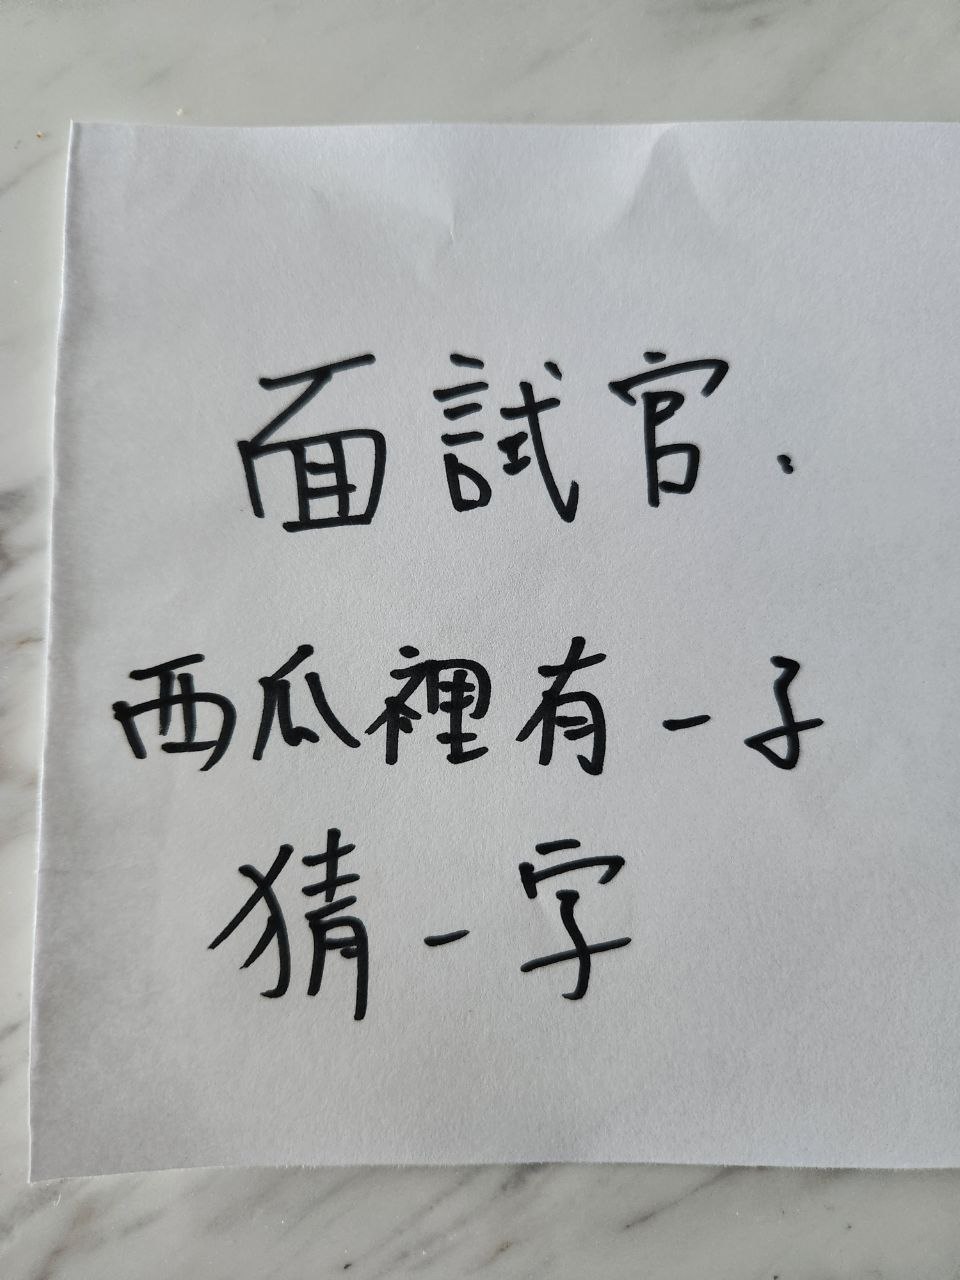 面試官.
西瓜裡有一子
猜一字